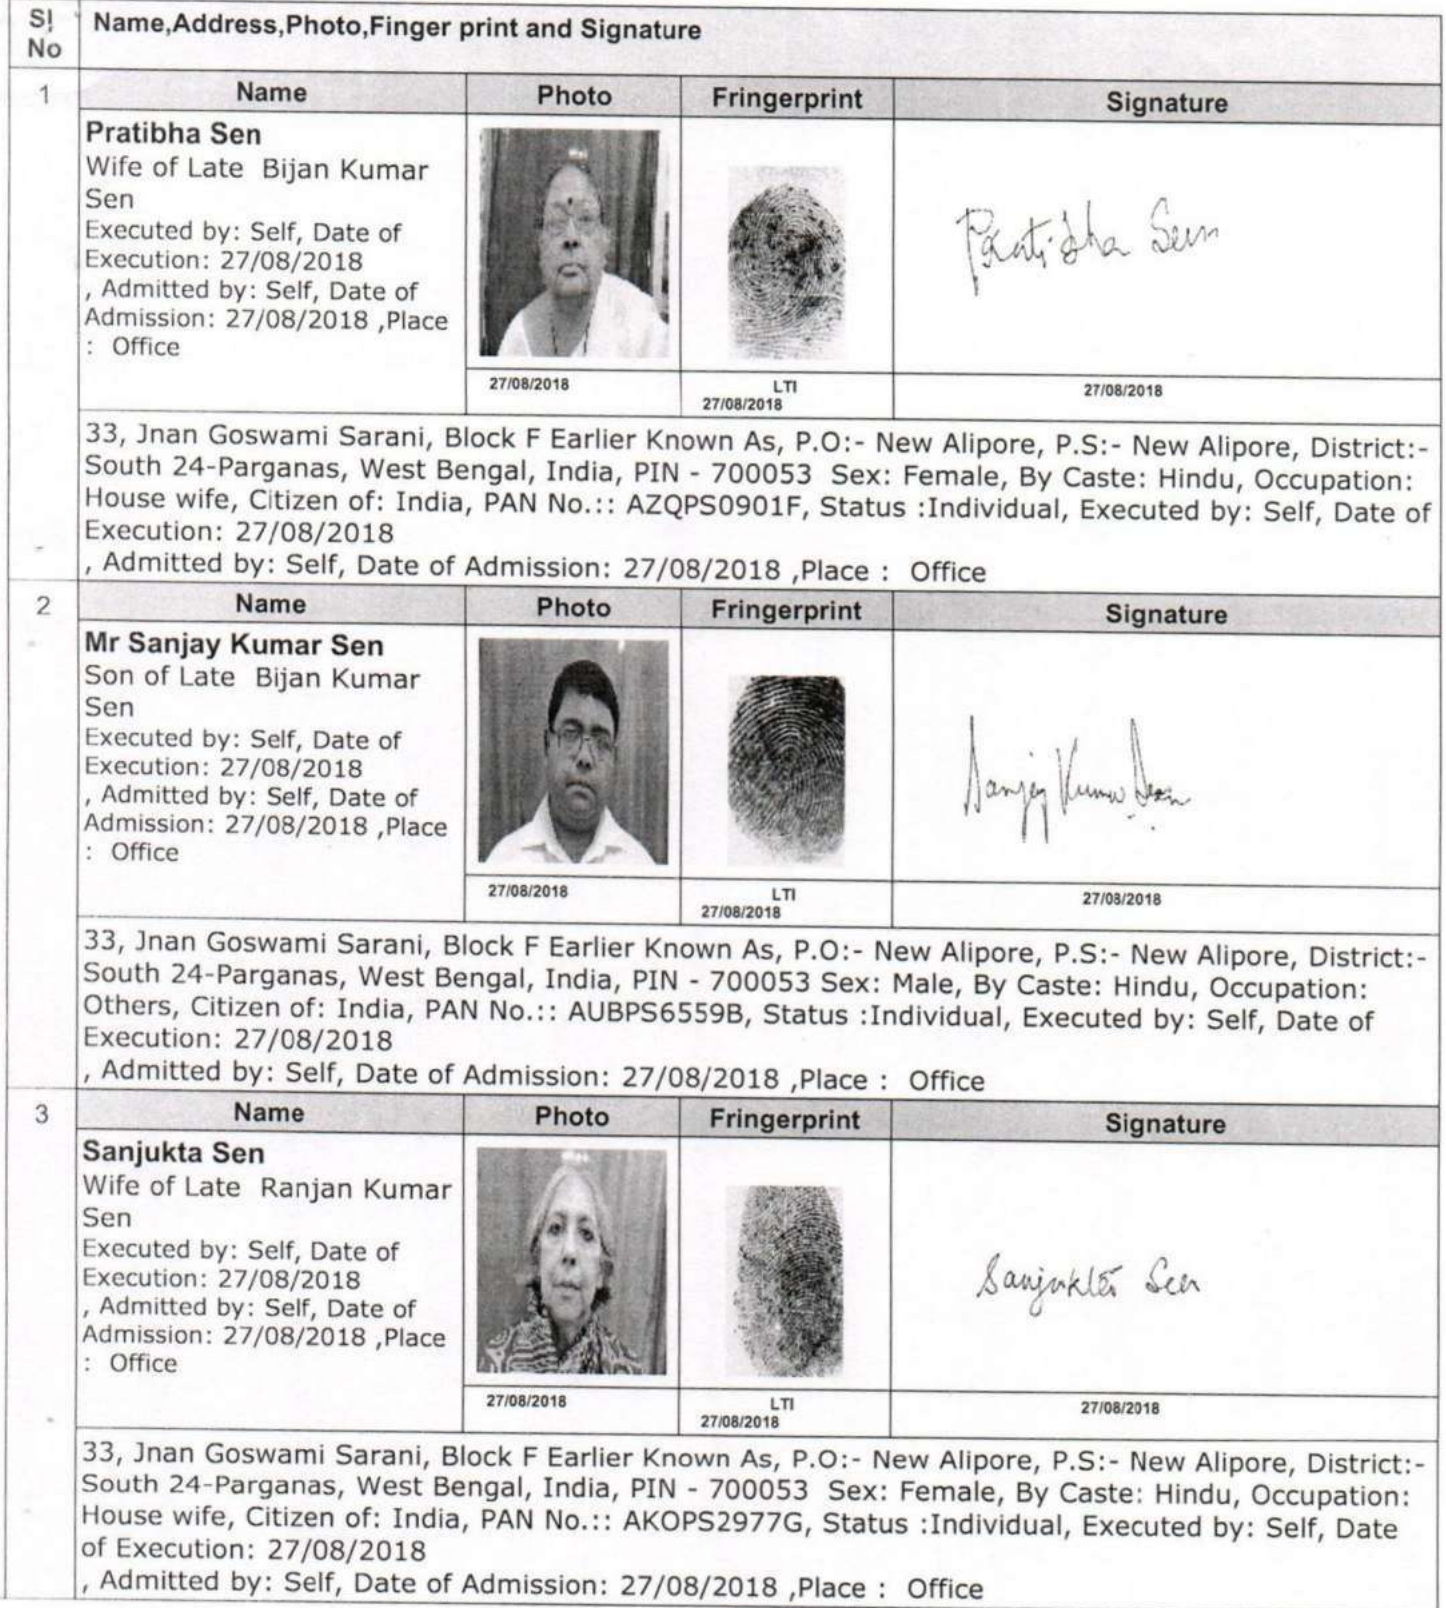 Sl
No
Name,Address,Photo,Finger print and Signature
1
Name Photo Fringerprint Signature
Pratibha Sen
Wife of Late Bijan Kumar
Sen
Executed by: Self, Date of
Execution: 27/08/2018
, Admitted by: Self, Date of
Admission: 27/08/2018 ,Place
: Office
Pratibha Sen
27/08/2018
LTI
27/08/2018
27/08/2018
33, Jnan Goswami Sarani, Block F Earlier Known As, P.O:- New Alipore, P.S:- New Alipore, District:-
South 24-Parganas, West Bengal, India, PIN - 700053 Sex: Female, By Caste: Hindu, Occupation:
House wife, Citizen of: India, PAN No.:: AZQPS0901F, Status :Individual, Executed by: Self, Date of
Execution: 27/08/2018
, Admitted by: Self, Date of Admission: 27/08/2018 ,Place : Office
2
Name Photo Fringerprint Signature
Mr Sanjay Kumar Sen
Son of Late Bijan Kumar
Sen
Executed by: Self, Date of
Execution: 27/08/2018
, Admitted by: Self, Date of
Admission: 27/08/2018 ,Place
: Office
Sanjay Kumar Sen
27/08/2018
LTI
27/08/2018
27/08/2018
33, Jnan Goswami Sarani, Block F Earlier Known As, P.O:- New Alipore, P.S:- New Alipore, District:-
South 24-Parganas, West Bengal, India, PIN - 700053 Sex: Male, By Caste: Hindu, Occupation:
Others, Citizen of: India, PAN No.:: AUBPS6559B, Status :Individual, Executed by: Self, Date of
Execution: 27/08/2018
, Admitted by: Self, Date of Admission: 27/08/2018 ,Place : Office
3
Name Photo Fringerprint Signature
Sanjukta Sen
Wife of Late Ranjan Kumar
Sen
Executed by: Self, Date of
Execution: 27/08/2018
, Admitted by: Self, Date of
Admission: 27/08/2018 ,Place
: Office
Sanjukta Sen
27/08/2018
LTI
27/08/2018
27/08/2018
33, Jnan Goswami Sarani, Block F Earlier Known As, P.O:- New Alipore, P.S:- New Alipore, District:-
South 24-Parganas, West Bengal, India, PIN - 700053 Sex: Female, By Caste: Hindu, Occupation:
House wife, Citizen of: India, PAN No.:: AKOPS2977G, Status :Individual, Executed by: Self, Date
of Execution: 27/08/2018
, Admitted by: Self, Date of Admission: 27/08/2018 ,Place : Office